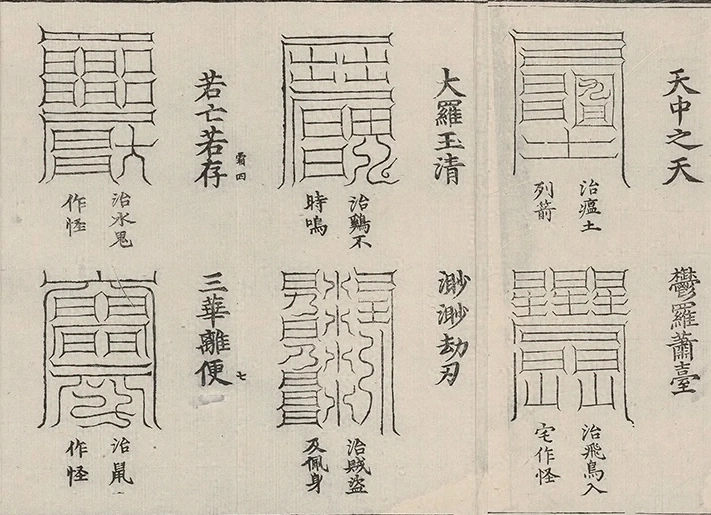 天中之天
治瘟土
列箭
鬱羅蕭臺
治飛鳥入
宅作怪
大羅玉清
治鷄不
時鳴
渺渺劫刃
治賊盜
及佩身
七
若亡若存
治水鬼
作怪
三華離便
治鼠
作怪